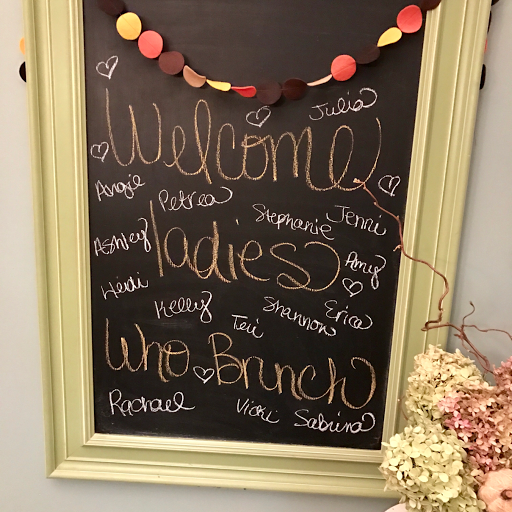 Julia
Welcome
Angie Petrea
Stephanie Jenni
Ashley ladies Amy
Heidi
Kelly Teri Shannon Erica
Who Brunch
Rachael Vicki Sabrina